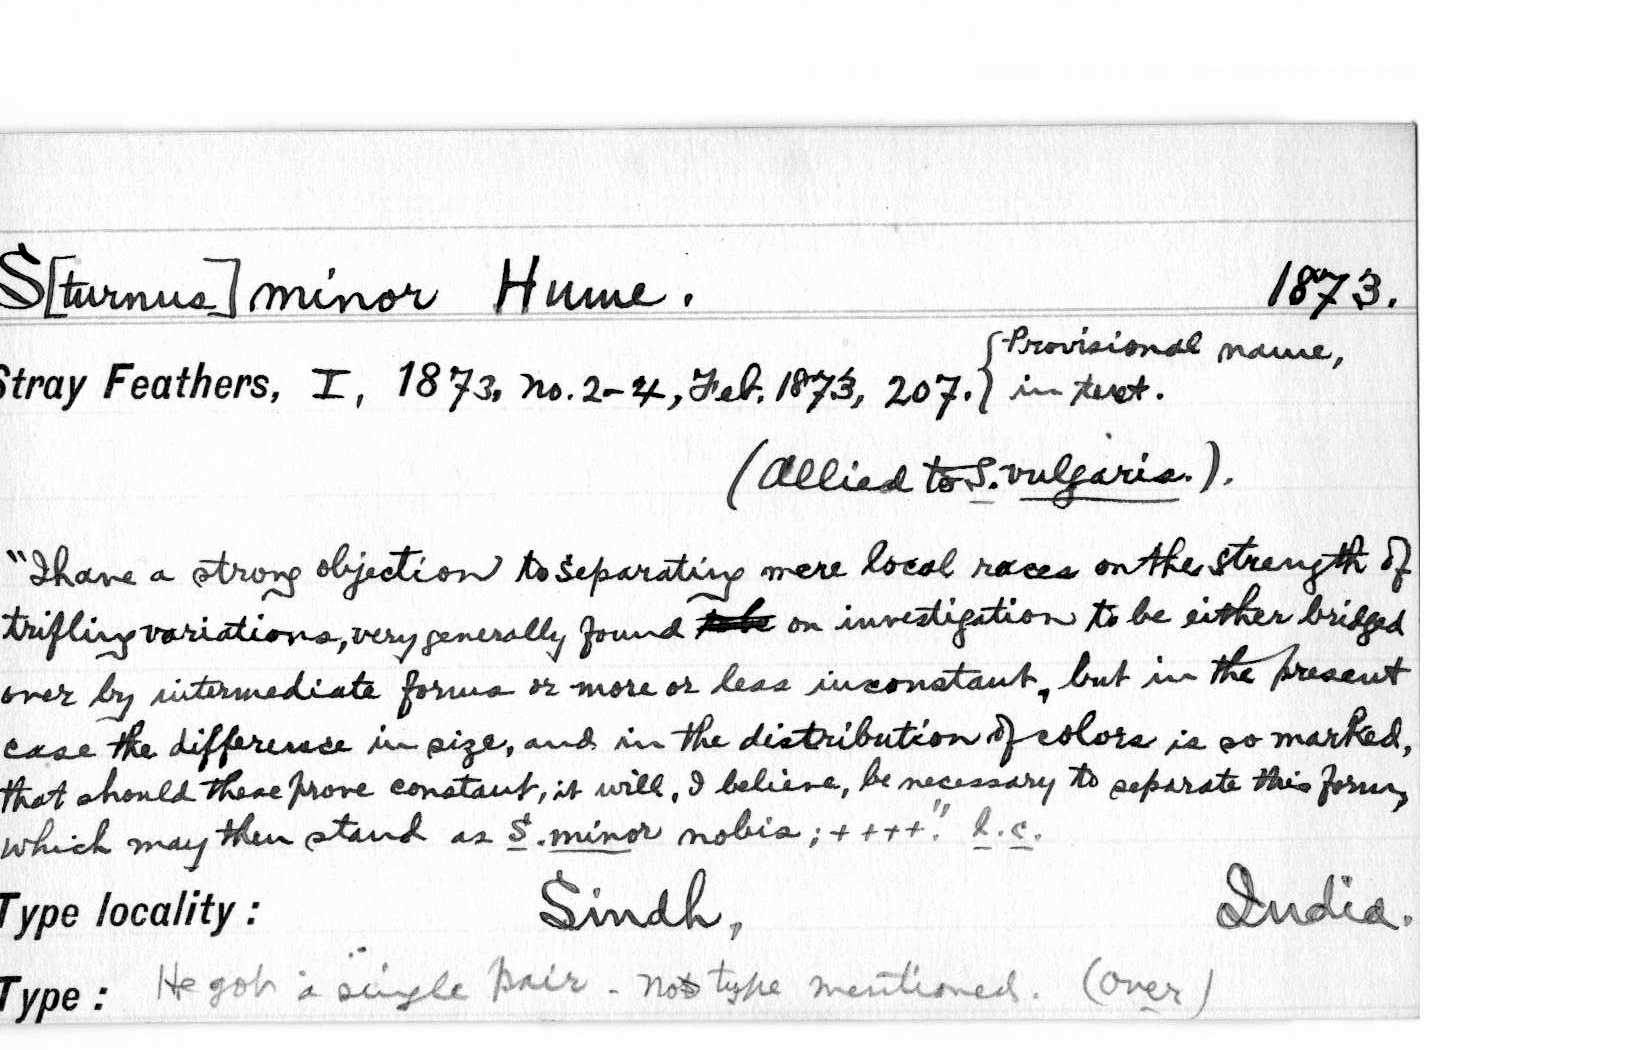 S[turnus] minor Hume. 1873.
Stray Feathers, I, 1873, no. 2-4, Feb. 1873, 207. {Provisional name,
in text.
(Allied to S. vulgaris.).
"I have a strong objection to separating mere local races on the strength of
trifling variations, very generally found to be on investigation to be either bridged
over by intermediate forms or more or less inconstant, but in the present
case the difference in size, and in the distribution of colors is so marked,
that should these prove constant, it will, I believe, be necessary to separate this form,
which may then stand as S. minor nobis; ++++." l.c.
Type locality: Sindh, India.
Type: He got a single pair - no type mentioned. (Over)